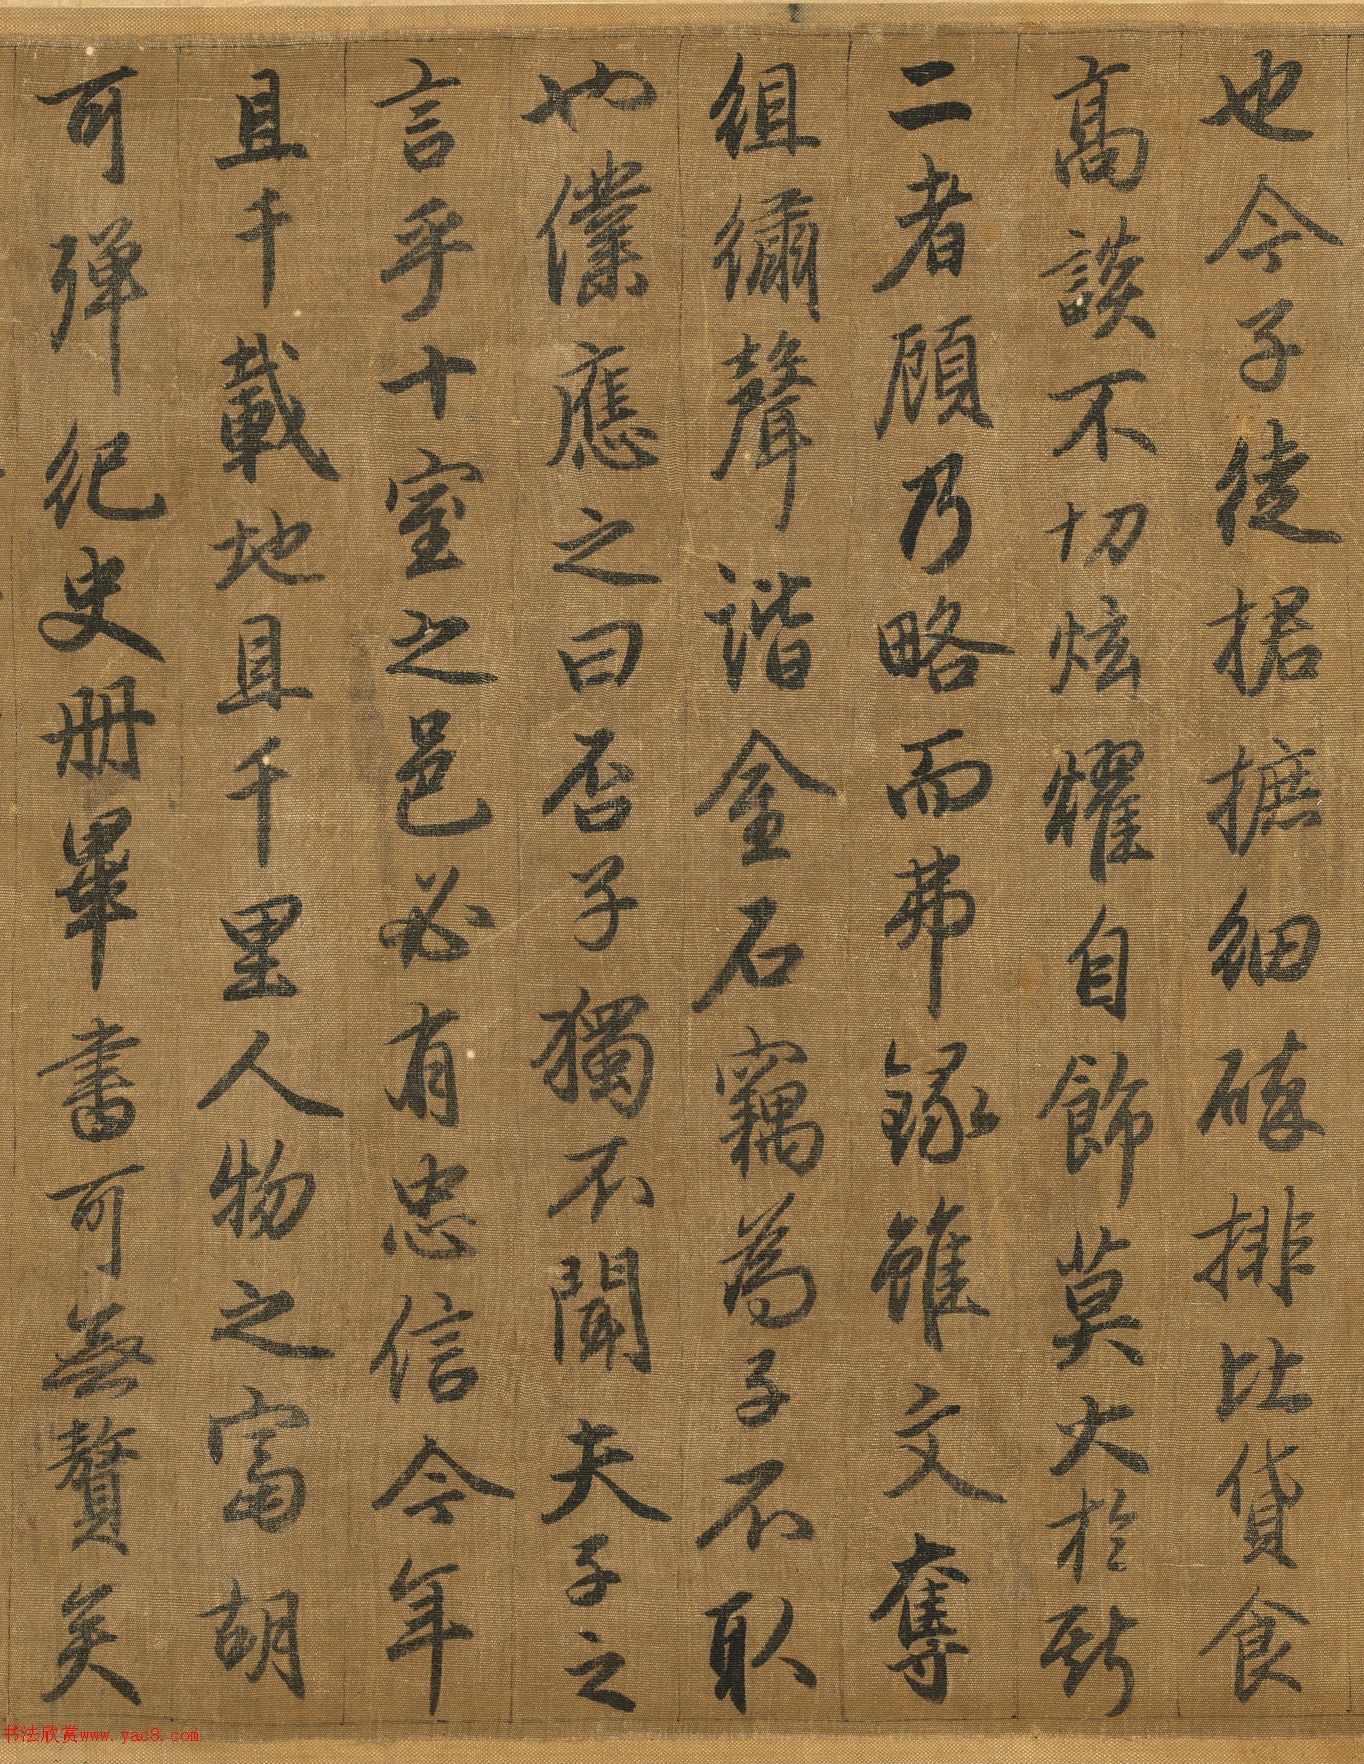 也今子徒据摭细碎排比货食
高谈不切炫耀自饰莫大於斯
二者顾乃略而弗録雖文奪
組繡聲諧金石竊為子不取
也僕應之曰否子獨不聞夫子之
言乎十室之邑必有忠信今年
且千載地且千里人物之富胡
可殫纪史册畢書可無贅矣
书法欣赏www.yac8.com